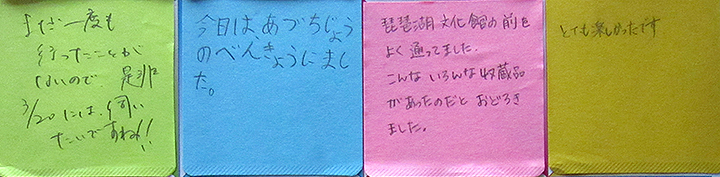 まだ一度も
行ったことが
ないので、是非
3/20には、伺い
たいですね!!
今日は、あづちじょう
のべんきょうにきまし
た。
琵琶湖文化館の前を
よく通ってました。
こんないろんな収蔵品
があったのだとおどろき
ました。
とても楽しかったです